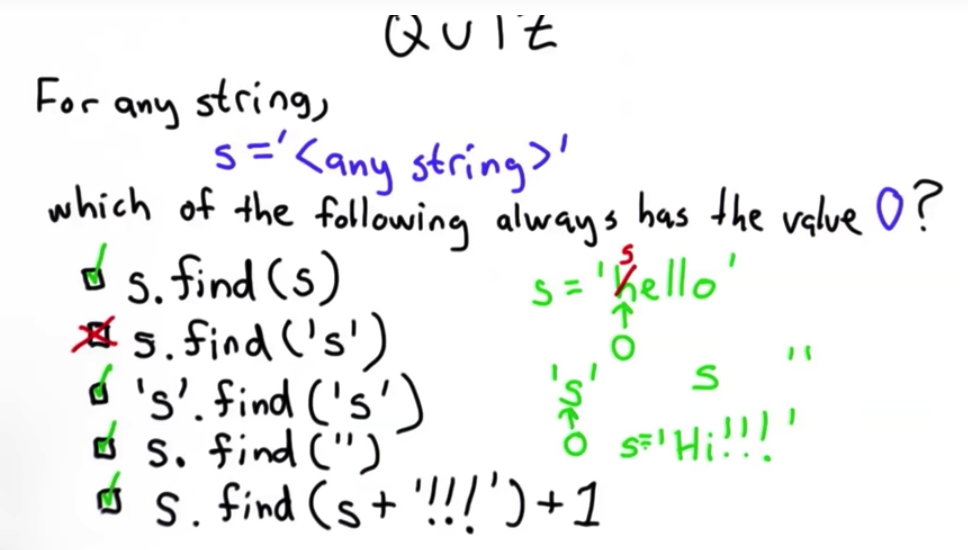 QUIZ
For any string,
s = '<any string>'
which of the following always has the value 0?
s.find(s)
s.find('s')
's'.find('s')
s.find('')
s.find(s + '!!!') + 1
s
s = 'hello'
0
's'
0
s ''
s = 'Hi!!!'